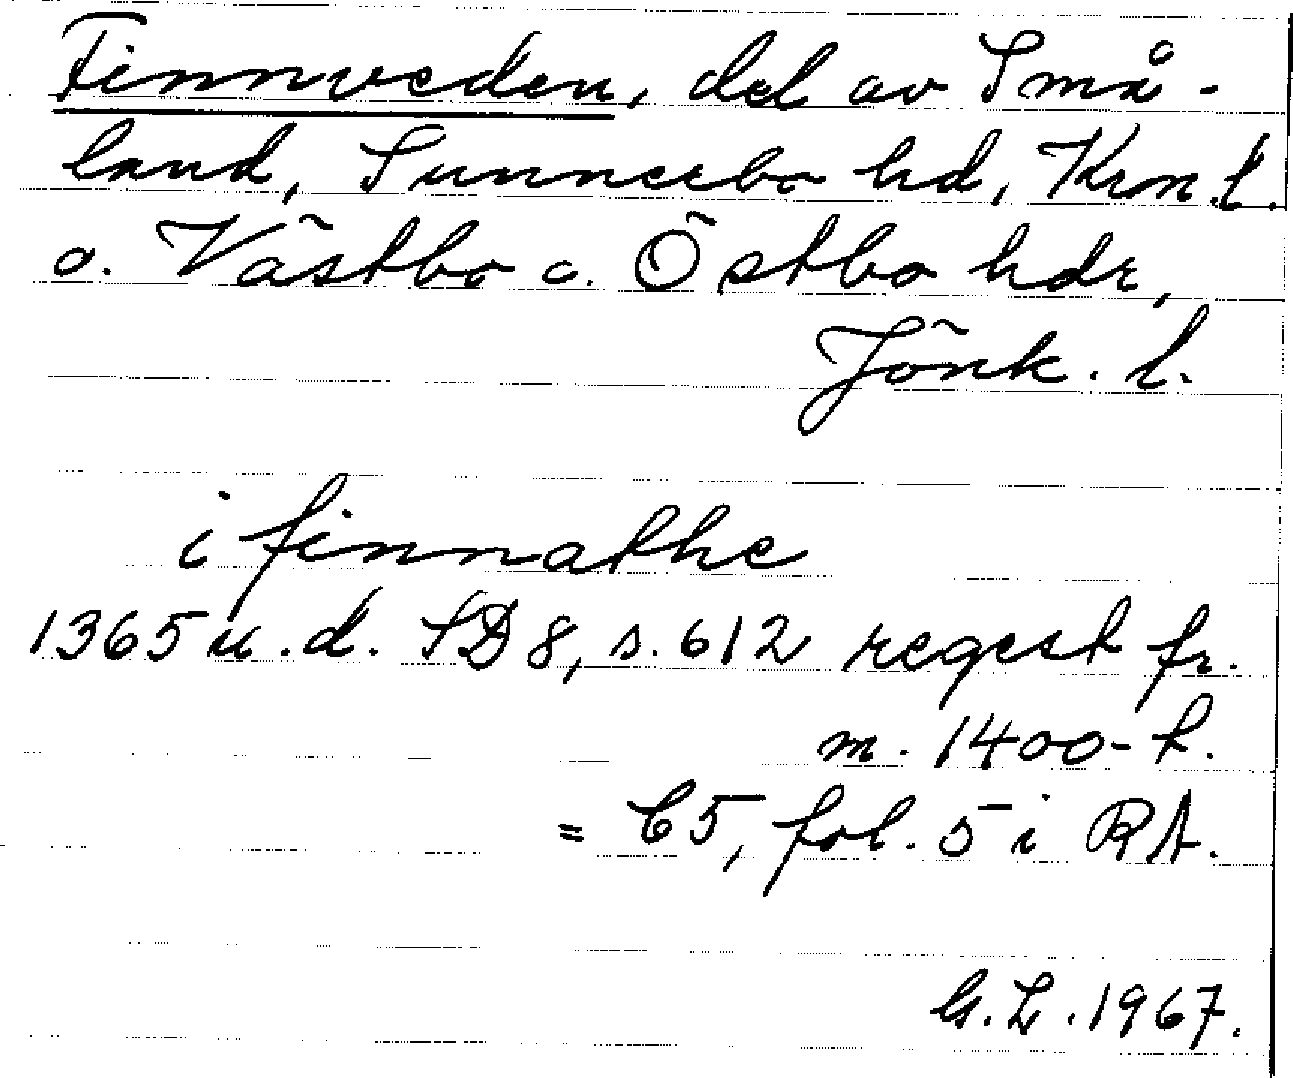 Finnveden, del av Små-
land, Sunnerbo hd, Kron.l.
o. Västbo o. Östbo hdr,
Jönk. l.
i finnathe
1365 u.d. SD 8, s. 612 regest fr.
m. 1400-t.
= C5, fol. 5 i RA.
G.L. 1967.